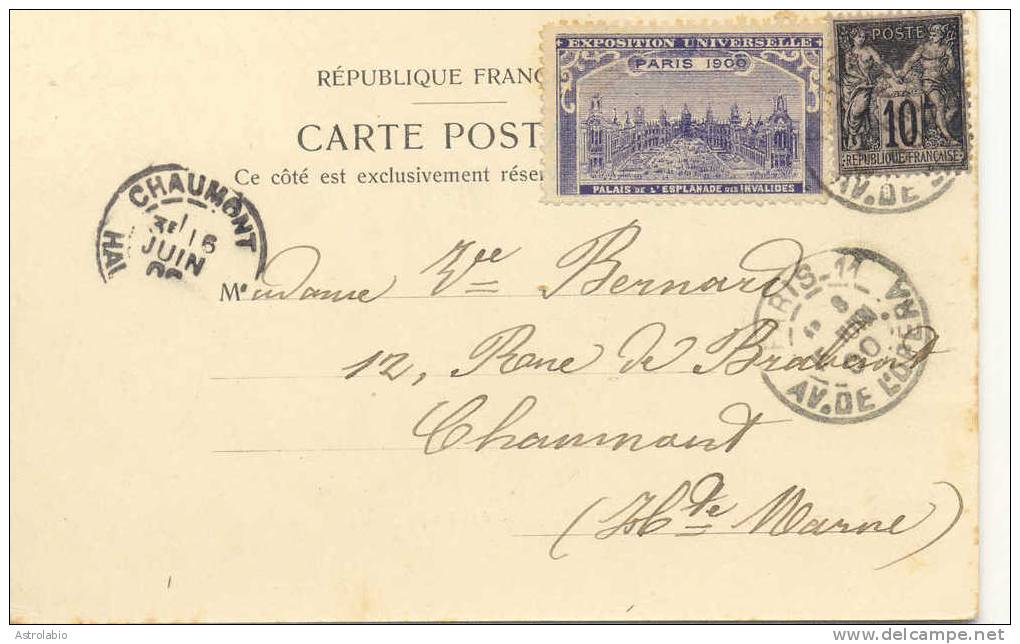 RÉPUBLIQUE FRANÇ
CARTE POST
Ce côté est exclusivement réser
EXPOSITION UNIVERSELLE
PARIS 1900
PALAIS DE L'ESPLANADE DES INVALIDES
POSTE
10
RÉPUBLIQUE FRANÇAISE
AV. DE
CHAUMONT
16
JUIN
PARIS-11
JUIN
00
AV. DE L'OPERA
Madame Vve Bernard
12, Rue de Brabant
Chaumont
(Hte Marne)
Astrolabio
delcampe.net